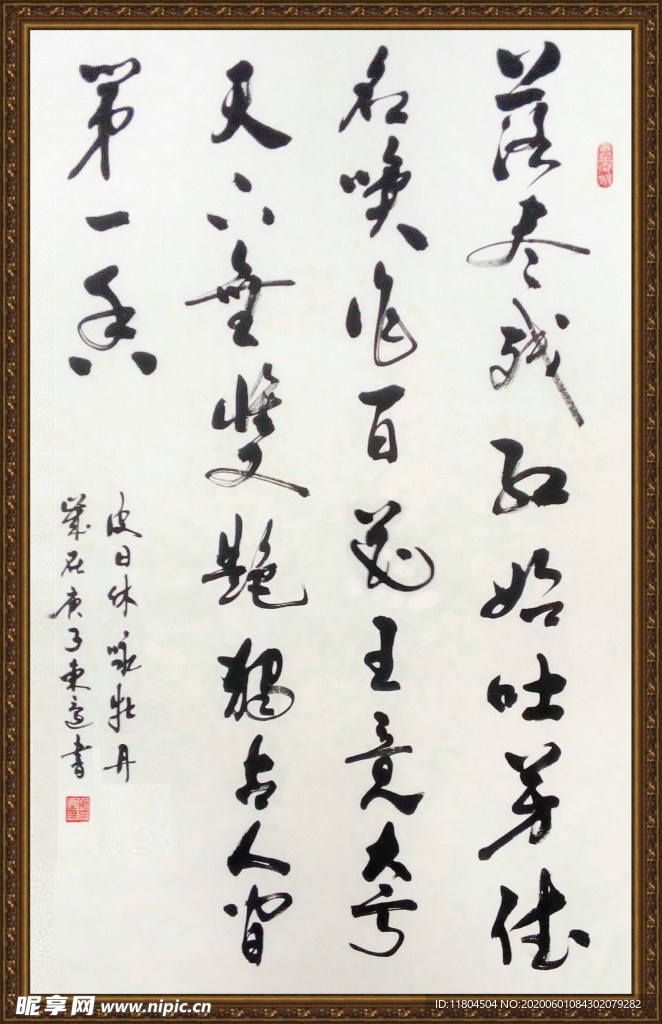 落尽残红始吐芳佳
名唤作百花王竟夸
天下無雙艷獨占人间
第一香
皮日休咏牡丹
歲在庚子東書
昵享网 www.nipic.cn
ID:11804504 NO:20200601084302079282